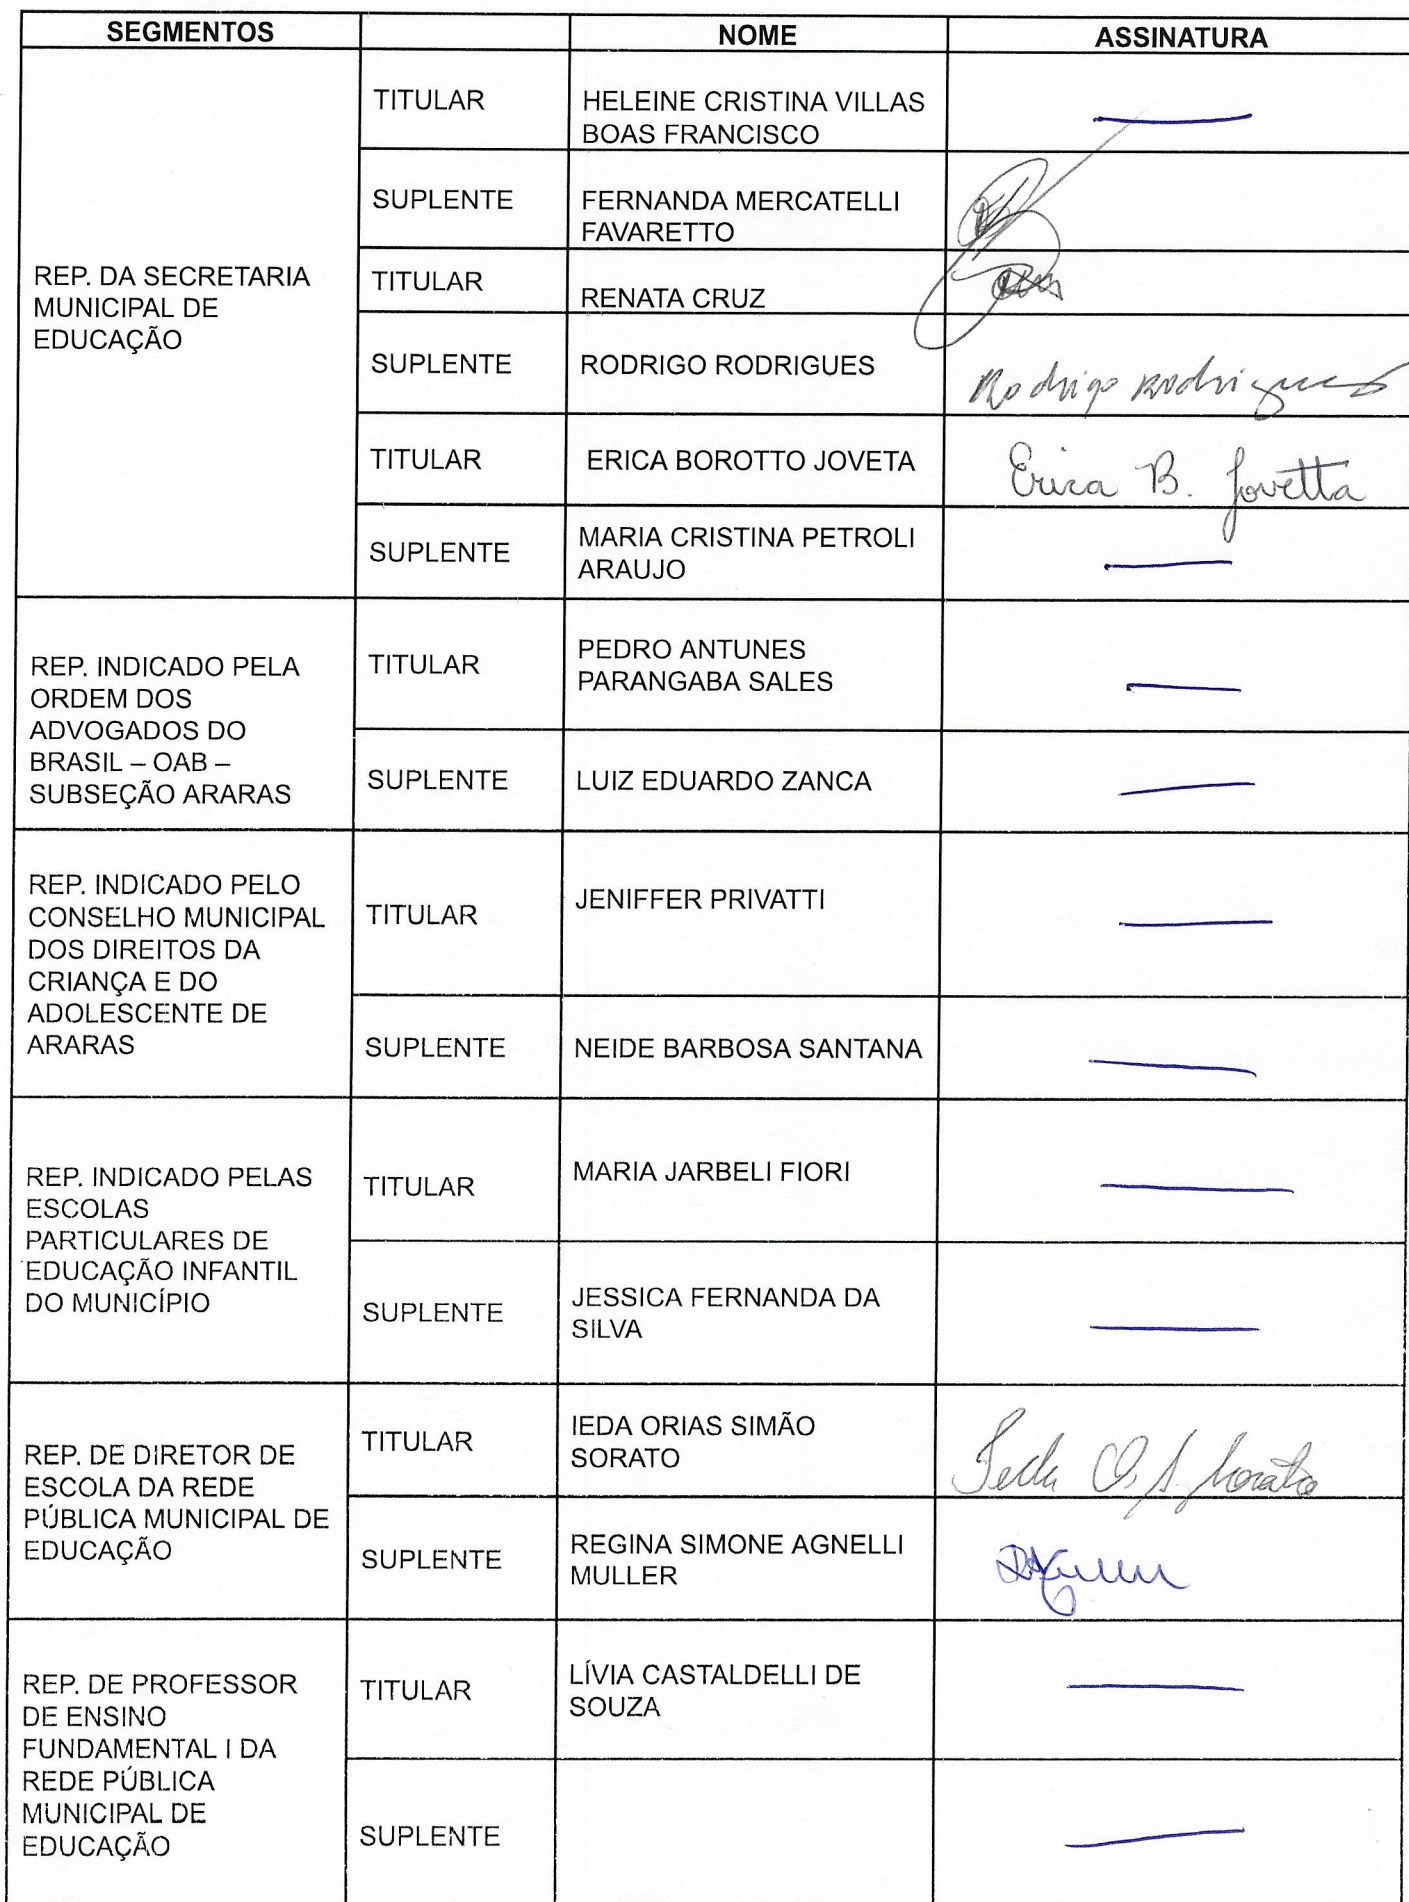 SEGMENTOS NOME ASSINATURA
REP. DA SECRETARIA
MUNICIPAL DE
EDUCAÇÃO
TITULAR
HELEINE CRISTINA VILLAS
BOAS FRANCISCO
SUPLENTE
FERNANDA MERCATELLI
FAVARETTO
TITULAR
RENATA CRUZ
SUPLENTE
RODRIGO RODRIGUES
Rodrigo Rodrigues
TITULAR
ERICA BOROTTO JOVETA
Erica B. Jovetta
SUPLENTE
MARIA CRISTINA PETROLI
ARAUJO
REP. INDICADO PELA
ORDEM DOS
ADVOGADOS DO
BRASIL – OAB –
SUBSEÇÃO ARARAS
TITULAR
PEDRO ANTUNES
PARANGABA SALES
SUPLENTE
LUIZ EDUARDO ZANCA
REP. INDICADO PELO
CONSELHO MUNICIPAL
DOS DIREITOS DA
CRIANÇA E DO
ADOLESCENTE DE
ARARAS
TITULAR
JENIFFER PRIVATTI
SUPLENTE
NEIDE BARBOSA SANTANA
REP. INDICADO PELAS
ESCOLAS
PARTICULARES DE
EDUCAÇÃO INFANTIL
DO MUNICÍPIO
TITULAR
MARIA JARBELI FIORI
SUPLENTE
JESSICA FERNANDA DA
SILVA
REP. DE DIRETOR DE
ESCOLA DA REDE
PÚBLICA MUNICIPAL DE
EDUCAÇÃO
TITULAR
IEDA ORIAS SIMÃO
SORATO
Ieda O. S. Sorato
SUPLENTE
REGINA SIMONE AGNELLI
MULLER
REP. DE PROFESSOR
DE ENSINO
FUNDAMENTAL I DA
REDE PÚBLICA
MUNICIPAL DE
EDUCAÇÃO
TITULAR
LÍVIA CASTALDELLI DE
SOUZA
SUPLENTE